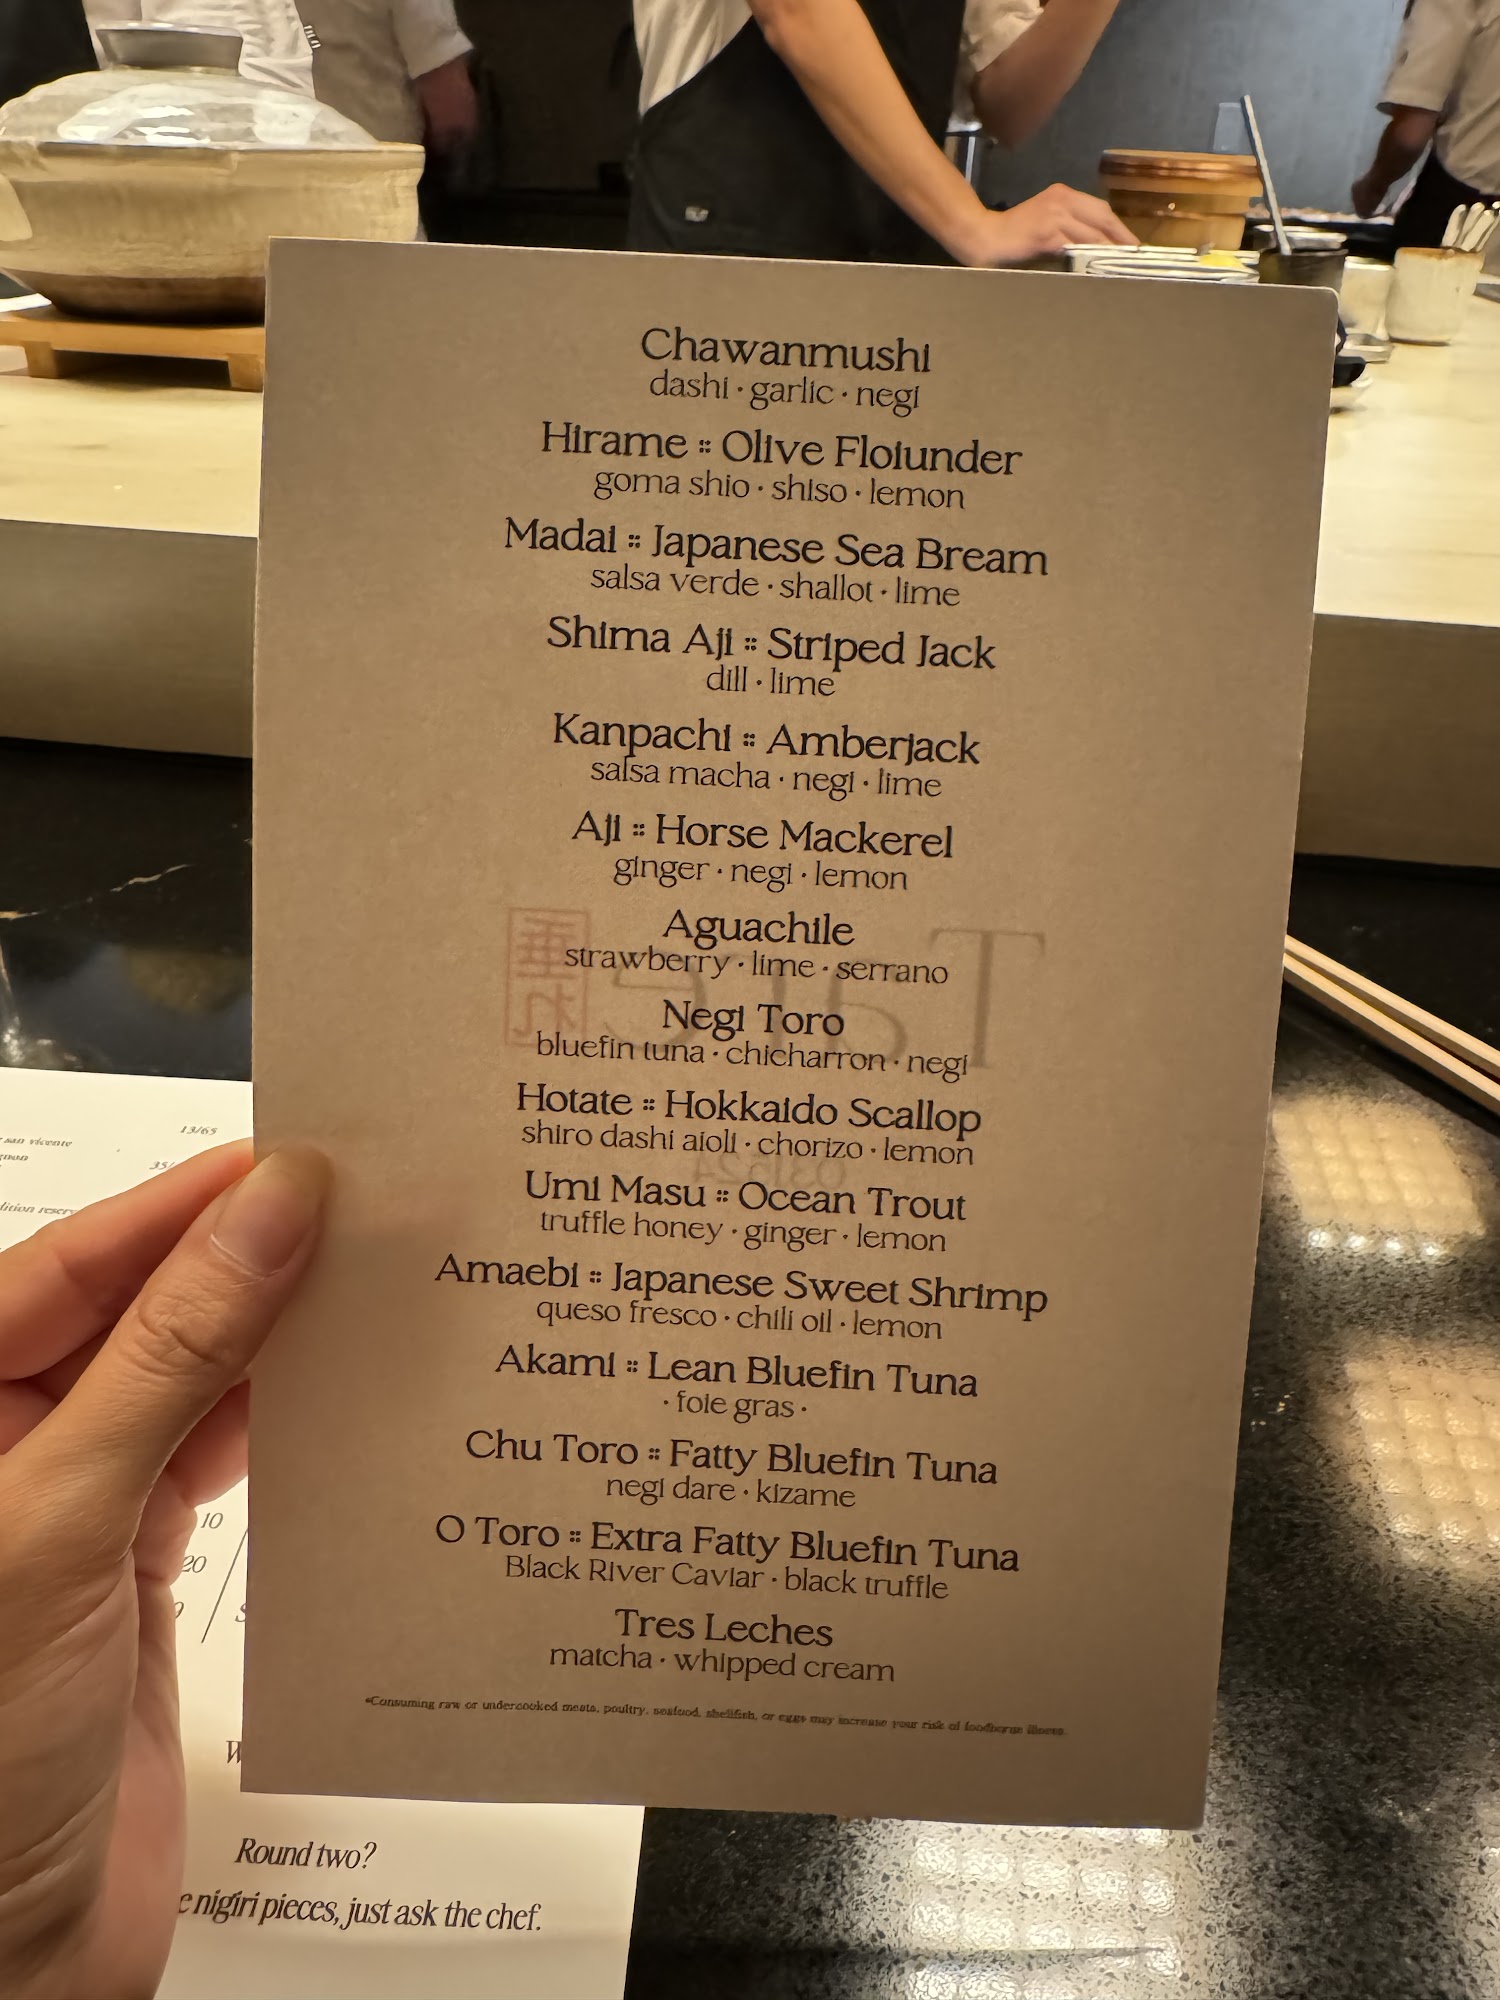 Chawanmushi
dashi · garlic · negi
Hirame :: Olive Floiunder
goma shio · shiso · lemon
Madai :: Japanese Sea Bream
salsa verde · shallot · lime
Shima Aji :: Striped Jack
dill · lime
Kanpachi :: Amberjack
salsa macha · negi · lime
Aji :: Horse Mackerel
ginger · negi · lemon
Aguachile
strawberry · lime · serrano
Negi Toro
bluefin tuna · chicharron · negi
Hotate :: Hokkaido Scallop
shiro dashi aioli · chorizo · lemon
Umi Masu :: Ocean Trout
truffle honey · ginger · lemon
Amaebi :: Japanese Sweet Shrimp
queso fresco · chili oil · lemon
Akami :: Lean Bluefin Tuna
· foie gras ·
Chu Toro :: Fatty Bluefin Tuna
negi dare · kizame
O Toro :: Extra Fatty Bluefin Tuna
Black River Caviar · black truffle
Tres Leches
matcha · whipped cream
*Consuming raw or undercooked meats, poultry, seafood, shellfish, or eggs may increase your risk of foodborne illness.
san vicente 13/65
10
20
Round two?
nigiri pieces, just ask the chef.